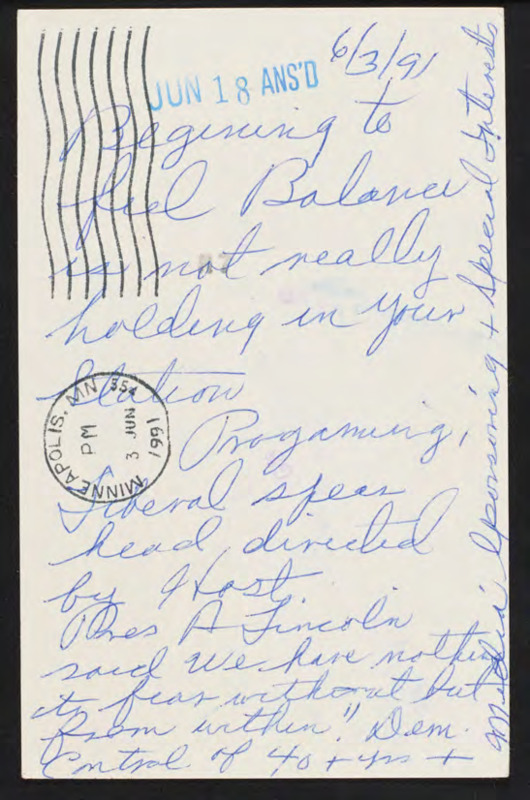 6/3/91
JUN 18 ANS'D
Begining to
feel Balance
is not really
holding in your
Station
MINNEAPOLIS, MN 554
PM
3 JUN
1991
Progaming,
Liberal spear
head, directed
by Host.
Pres A Lincoln
said We have nothing
to fear without but
from within." Dem.
Control of 40 + yrs +
Media Sponsoring + Special Interests